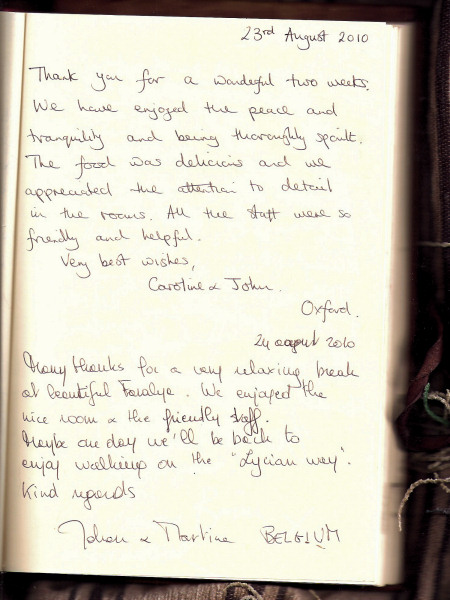 23rd August 2010
Thank you for a wonderful two weeks.
We have enjoyed the peace and
tranquility and being thoroughly spoilt.
The food was delicious and we
appreciated the attention to detail
in the rooms. All the staff were so
friendly and helpful.
Very best wishes,
Caroline & John.
Oxford.
24 august 2010
Many thanks for a very relaxing break
at beautiful Faralya. We enjoyed the
nice room & the friendly staff.
Maybe one day we'll be back to
enjoy walking on the "Lycian way".
Kind regards
Johan & Martine BELGIUM